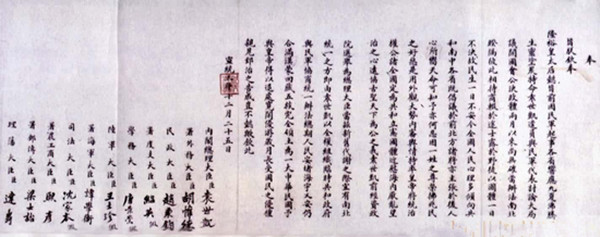 奉
旨朕欽奉
隆裕皇太后懿旨前因民軍起事各省響應九夏沸騰
生靈塗炭特命袁世凱遣員與民軍代表討論大局
議開國會公決政體兩月以來尚無確當辦法南北
暌隔彼此相持商輟於途士露於野徒以國體一日
不決故民生一日不安今全國人民心理多傾向共
和南中各省既倡議於前北方諸將亦主張於後人
心所嚮天命可知予亦何忍因一姓之尊榮拂兆民
之好惡是用外觀大勢內審輿情特率皇帝將統治
權公諸全國定為共和立憲國體近慰海內厭亂望
治之心遠協古聖天下為公之義袁世凱前經資政
院選舉為總理大臣當茲新舊代謝之際宜有南北
統一之方即由袁世凱以全權組織臨時共和政府
與民軍協商統一辦法總期人民安堵海宇乂安仍
合滿漢蒙回藏五族完全領土為一大中華民國予
與皇帝得以退處寬閒優游歲月長受國民之優禮
親見郅治之告成豈不懿歟欽此
宣統三年十二月二十五日
內閣總理大臣袁世凱
署外務大臣胡惟德
民政大臣趙秉鈞
署度支大臣紹英
學務大臣唐景崇
陸軍大臣王士珍
署海軍大臣譚學衡
司法大臣沈家本
署農工商大臣熙彥
署郵傳大臣梁士詒
理藩大臣達壽